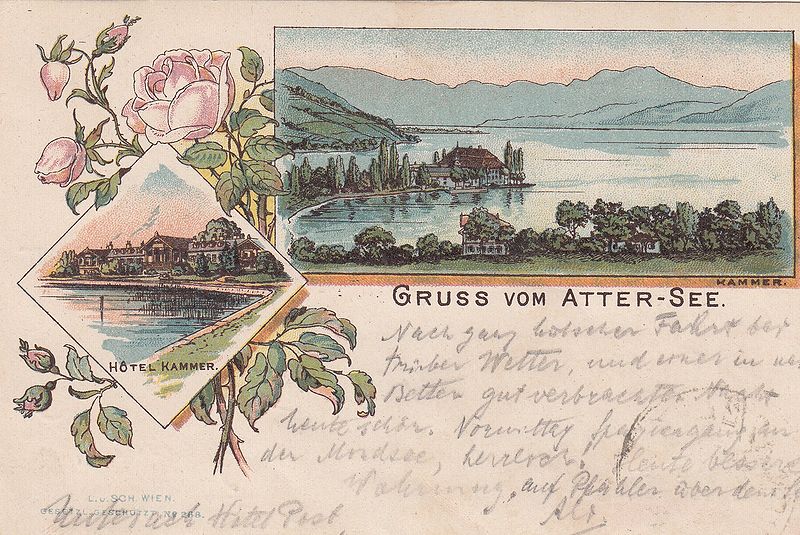 KAMMER.
GRUSS VOM ATTER-SEE.
HÔTEL KAMMER.
Nach ganz hübscher Fahrt bei
trüber Wetter, und einer in
Betten gut verbrachter Nacht
heute schön. Vormittag Spaziergang an
der Mondsee, herrlich. Heute bessere
Wohnung, auf Pfähler über dem
L. u. SCH. WIEN.
GESETZL. GESCHÜTZT. No 268.
Hotel Post